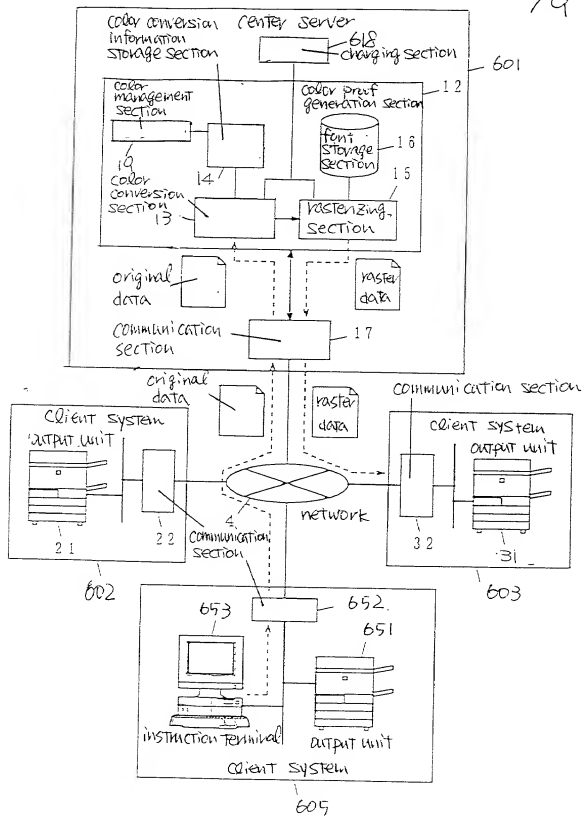 79
color conversion
information
storage section
center server
618
charging section
601
color
management
section
color proof
generation section
12
19
14
font
storage
section
16
15
color
conversion
section
13
rasterizing
section
original
data
raster
data
communication
section
17
original
data
raster
data
communication section
client system
output unit
21
22
602
4
network
communication
section
client system
output unit
32
31
603
653
652
651
instruction terminal
output unit
client system
605